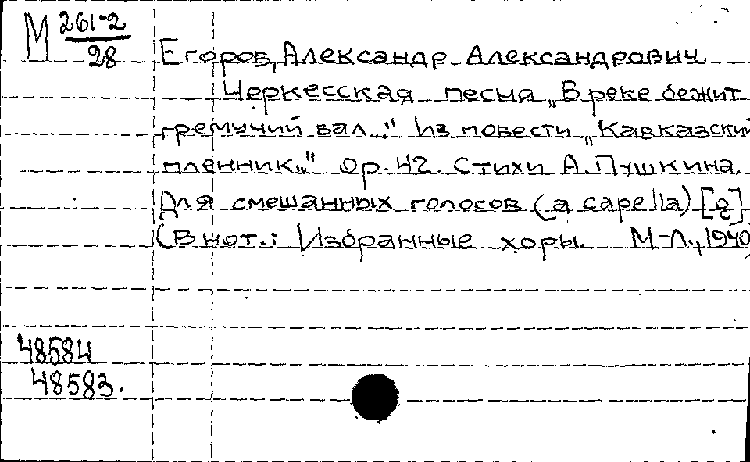 М 261-2
28
Егоров, Александр Александрович
Черкесская песня „В реке бежит
гремучий вал..." Из повести „Кавказский
пленник." ор. 42. Стихи А. Пушкина.
Для смешанных голосов (a capella)
(В нот.: Избранные хоры. М-Л., 1940
48584
48583.